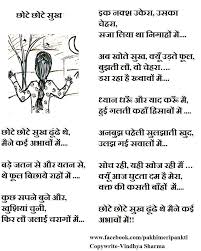 छोटे छोटे सुख
छोटे छोटे सुख ढूंढे थे,
मैने कई अभावों में...
बड़े जतन से और यतन से,
थे फूल बिछाये राहों में ....
कुछ सपने बुने और,
खुशियां चुनी,
फिर लौ जलाई चरागों में....
इक नक्श उकेरा, उसका
चेहरा,
सजा लिया था निगाहों में...
अब खोते सुख, क्यूँ उड़ते फूल,
बुझती लौ, वो चेहरा....
डरा रहा है ख्वाबों में...
ध्यान धरूँ और याद करूँ मैं,
हुई गलती कहाँ हिसाबों में ....
अनबुझ पहेली सुलझाती खुद,
उलझ गई सवालों में...
सोच रही, यही खोज रही मैं ...
क्यूँ आज घुटता दम है मेरा,
वक्त की कसती बाँहों में ....
छोटे छोटे सुख ढूंढे थे मैने कई
अभावों में!!
www.facebook.com/pakhimeripankti
Copywrite-Vindhya Sharma